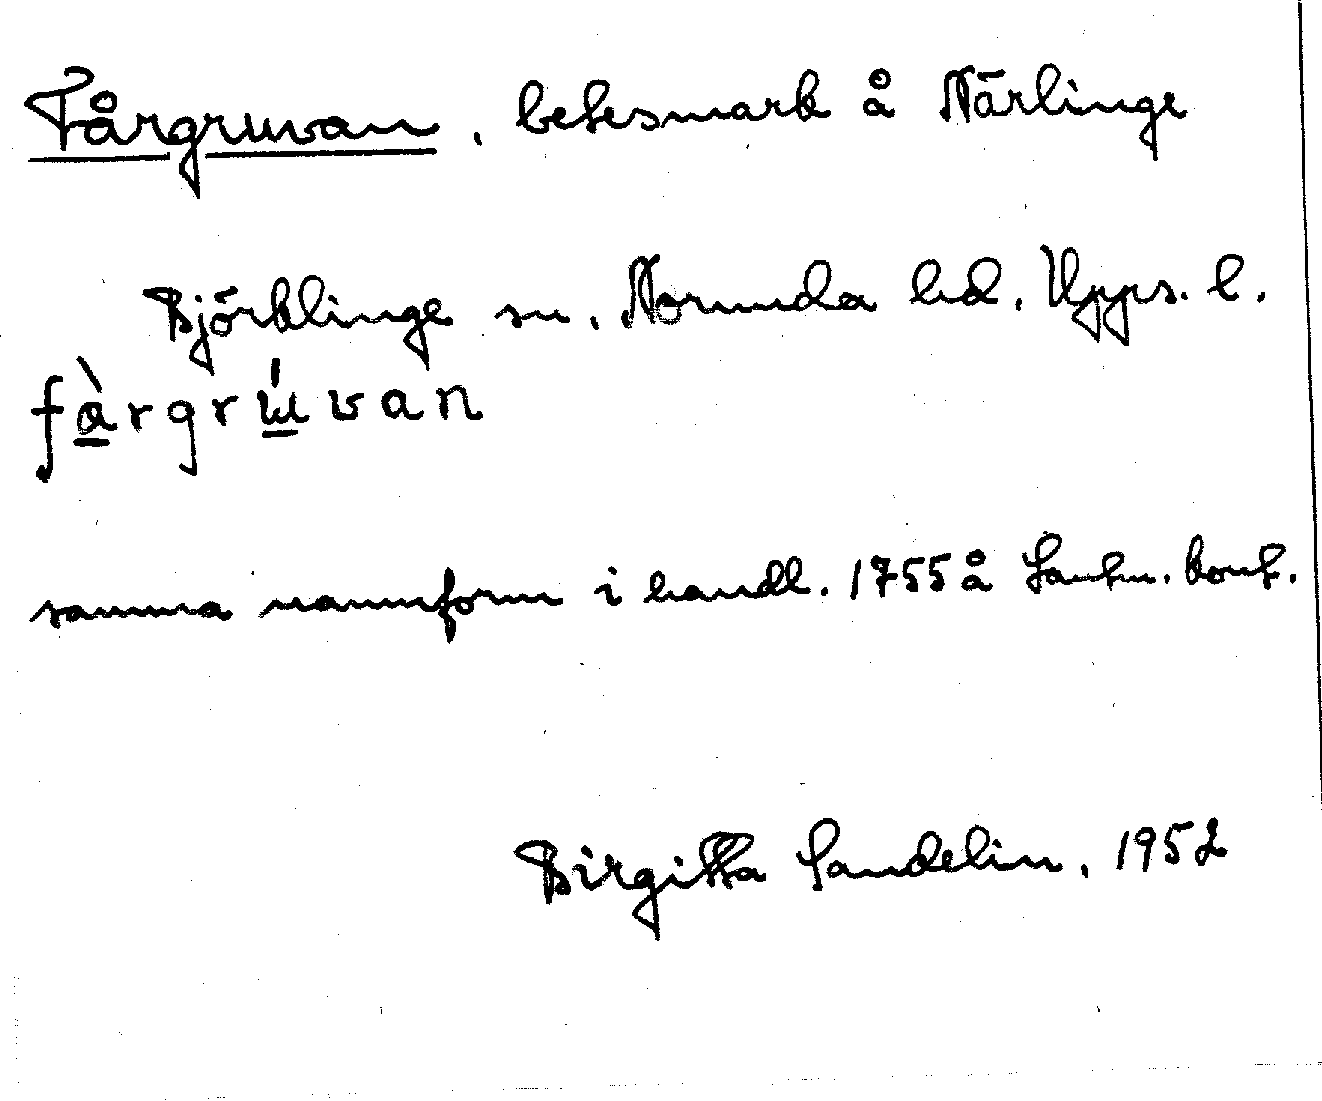 Fårgruvan, betesmark å Närlinge
Björklinge sn. Norunda hd. Upps. l.
fàrgrúvan
samma namnform i handl. 1755 å Lantm. kont.
Birgitta Sandelin, 1952